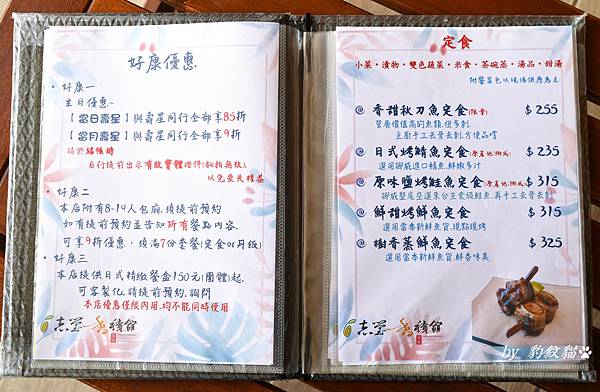 好康優惠
• 好康一
生日優惠~
【當日壽星】與壽星同行全部享85折
【當月壽星】與壽星同行全部享9折
請於結帳時
自行提前出示有效實體證件(翻拍無效),
以免喪失權益
• 好康二
本店附有8-14人包廂,須提前預約
如有提前預約並告知所有餐點內容,
可享9折優惠,須滿7份套餐(定食or丼飯)
• 好康三
本店提供日式精緻餐盒150元(團體)起,
可客製化,請提前預約,詢問
本店優惠僅限內用,均不能同時使用
定食
小菜•漬物•雙色蔬菜•米食•茶碗蒸•湯品•甜湯
附餐菜色以現場供應為主
香甜秋刀魚定食(限量) $255
營養價值高的魚類,但多刺,
主廚手工去骨去刺,方便品嚐
日式烤鯖魚定食(原產地:挪威) $235
選用挪威進口鯖魚,鮮嫩多汁
原味鹽烤鮭魚定食(原產地:挪威) $315
挪威整尾空運來台生食級鮭魚,再手工去骨去刺
鮮甜烤鮮魚定食 $315
選用當季新鮮魚貨,現點現烤
樹香蒸鮮魚定食 $325
選用當季新鮮魚貨,鮮香味美
by 豹紋貓